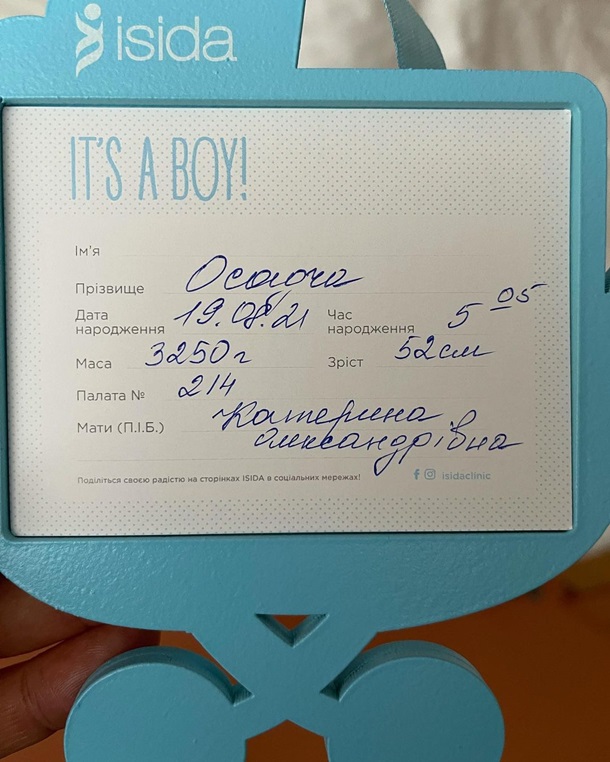 isida
IT'S A BOY!
Ім'я
Прізвище
Дата народження 19.08.21 Час народження 5 05
Маса 3250 г Зріст 52 см
Палата № 214
Мати (П.І.Б.) Катерина
Олександрівна
Поділіться своєю радістю на сторінках ISIDA в соціальних мережах! isidaclinic